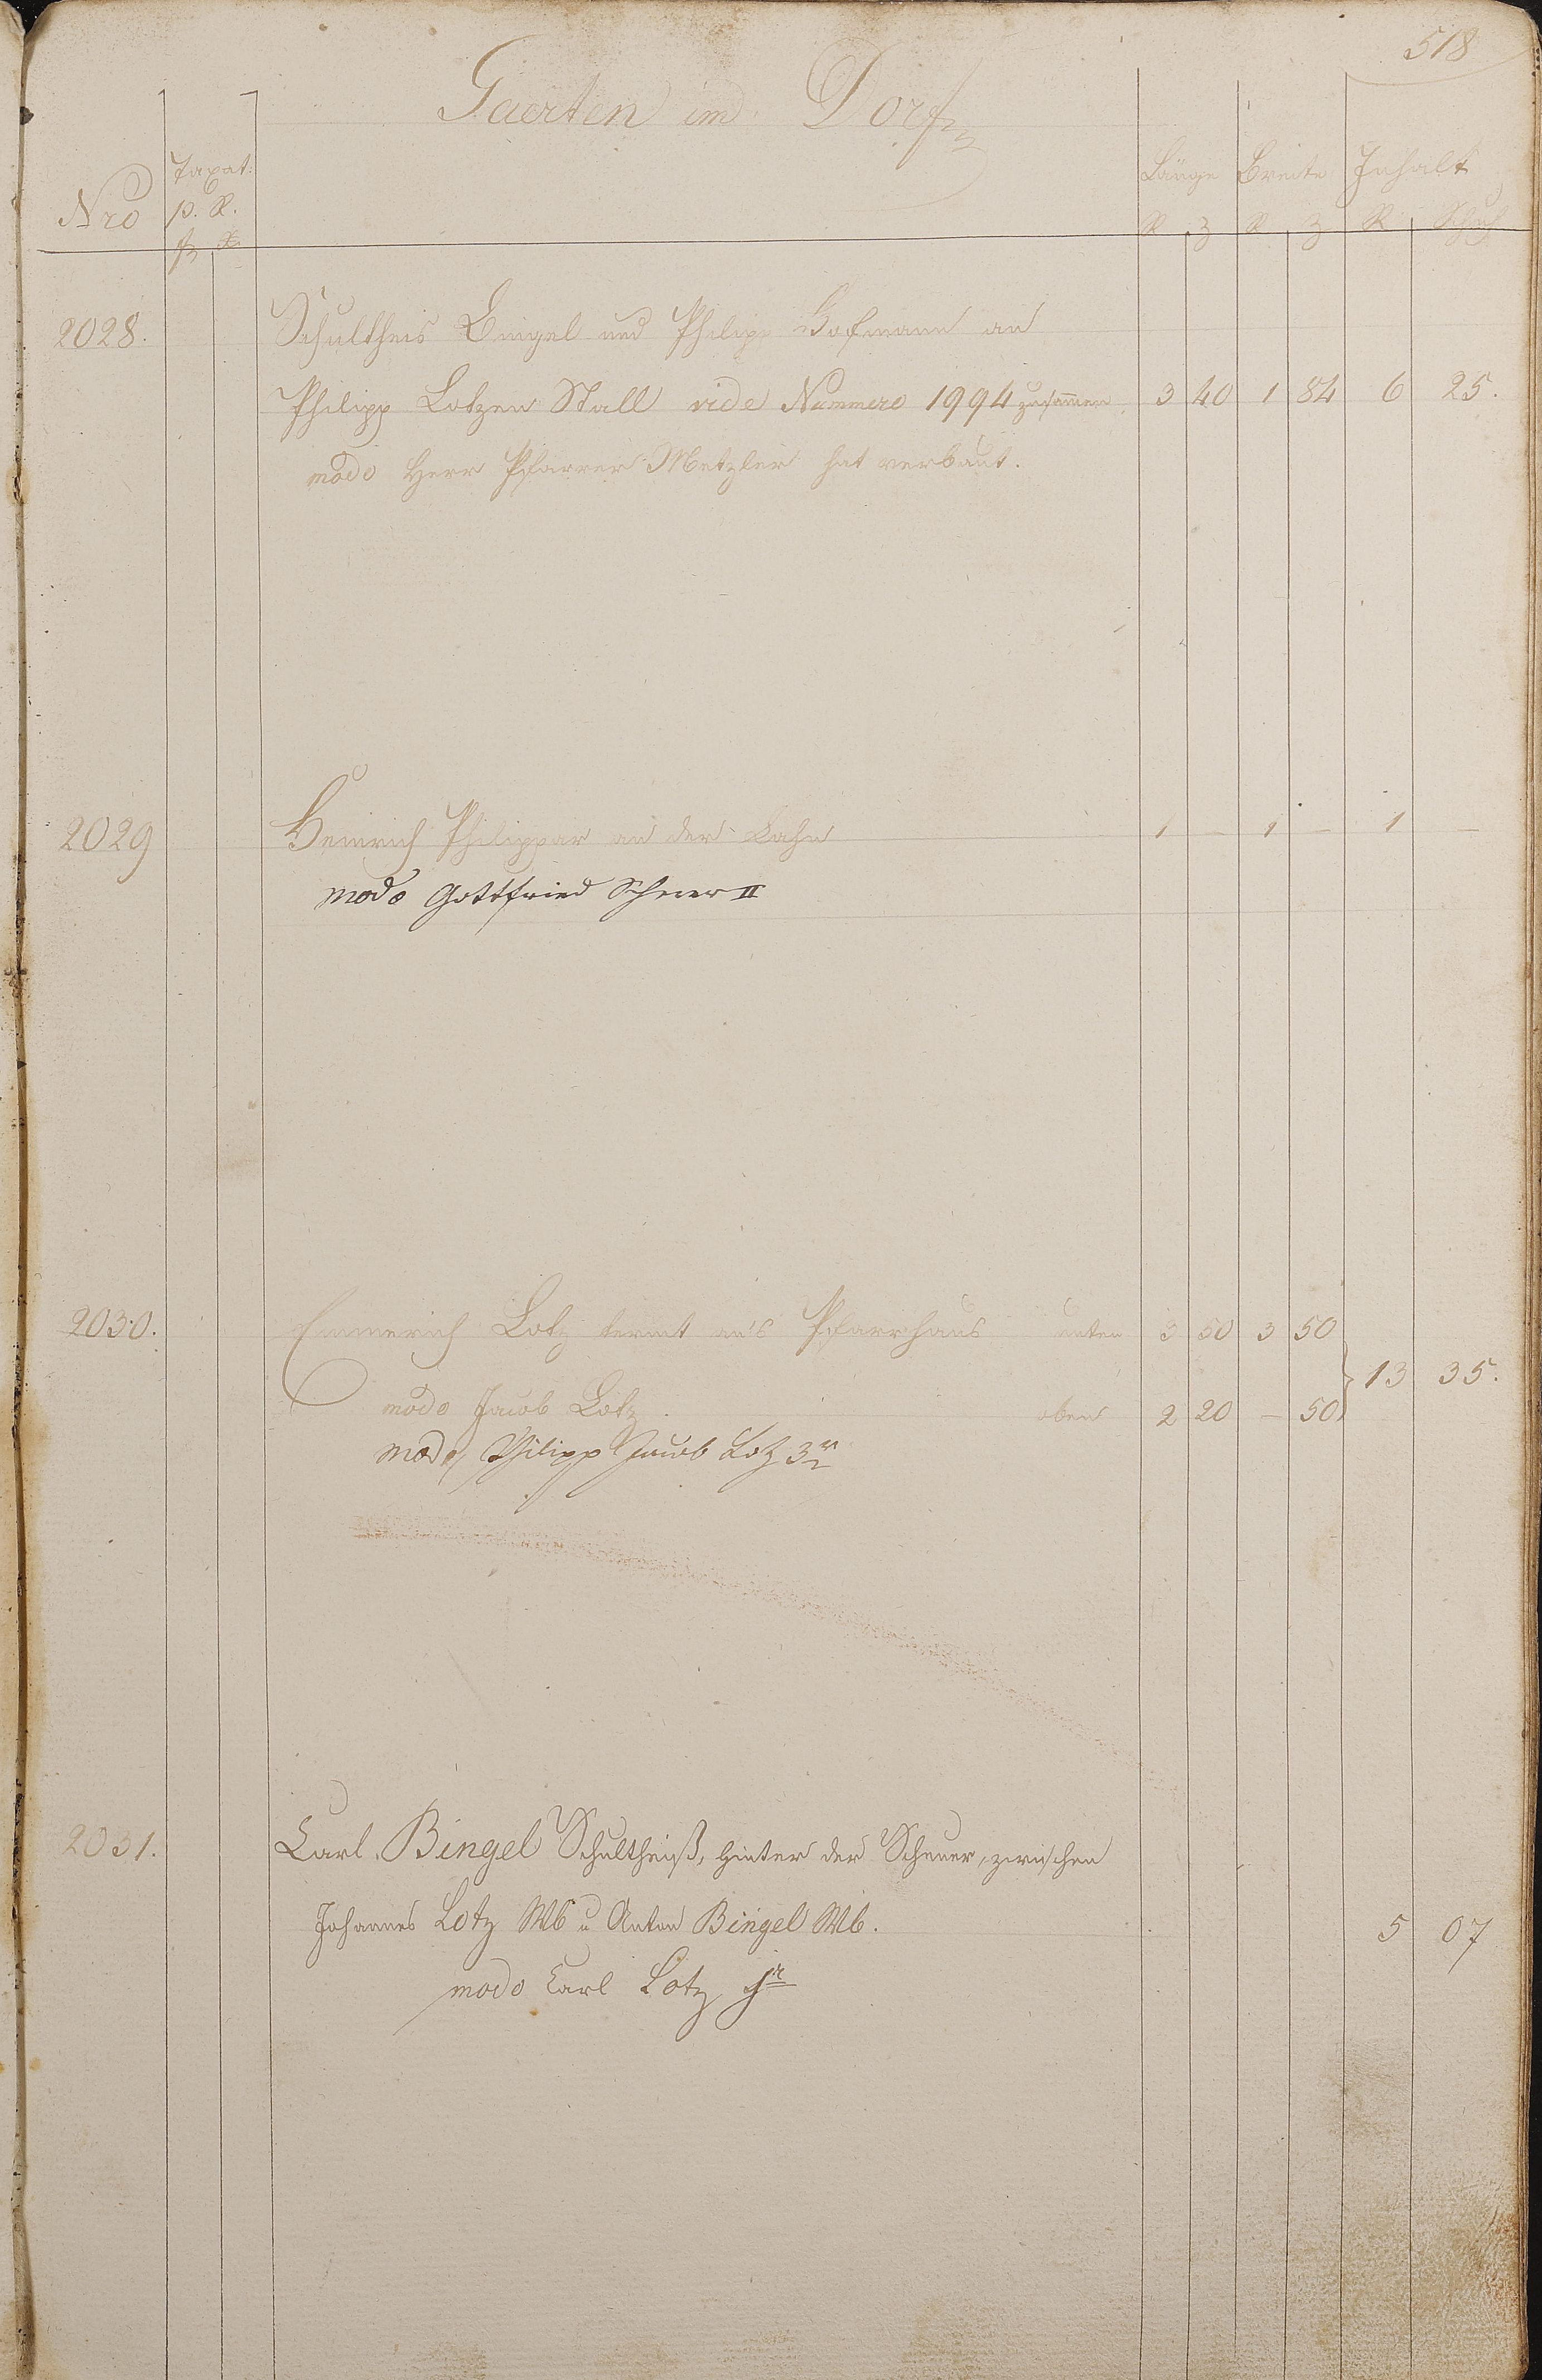 518
Gaerten im Dorf
Nro Taxat: p. R. Länge Breite Inhalt
fl x R Z R Z R Schuh
2028. Schultheis Bingel und Philipp Hofmann an
Philipp Lotzen Stall vide Nummero 1994 zusammen 3 40 1 84 6 25.
modo Herr Pfarrer Metzler hat verbaut.
2029 Heinrich Philippar an der Lahn 1 – 1 – 1 –
modo Gottfried Scheuer II
2030. Emmerich Lotz an's Pfarrhaus unten 3 50 3 50
13 35.
modo Jacob Lotz oben 2 20 – 50
modo Philipp Jacob Lotz 3r
2031. Carl Bingel Schultheiß, hinter der Scheuer, zwischen
Johannes Lotz Wb u Anton Bingel Wb. 5 07
modo Carl Lotz jr